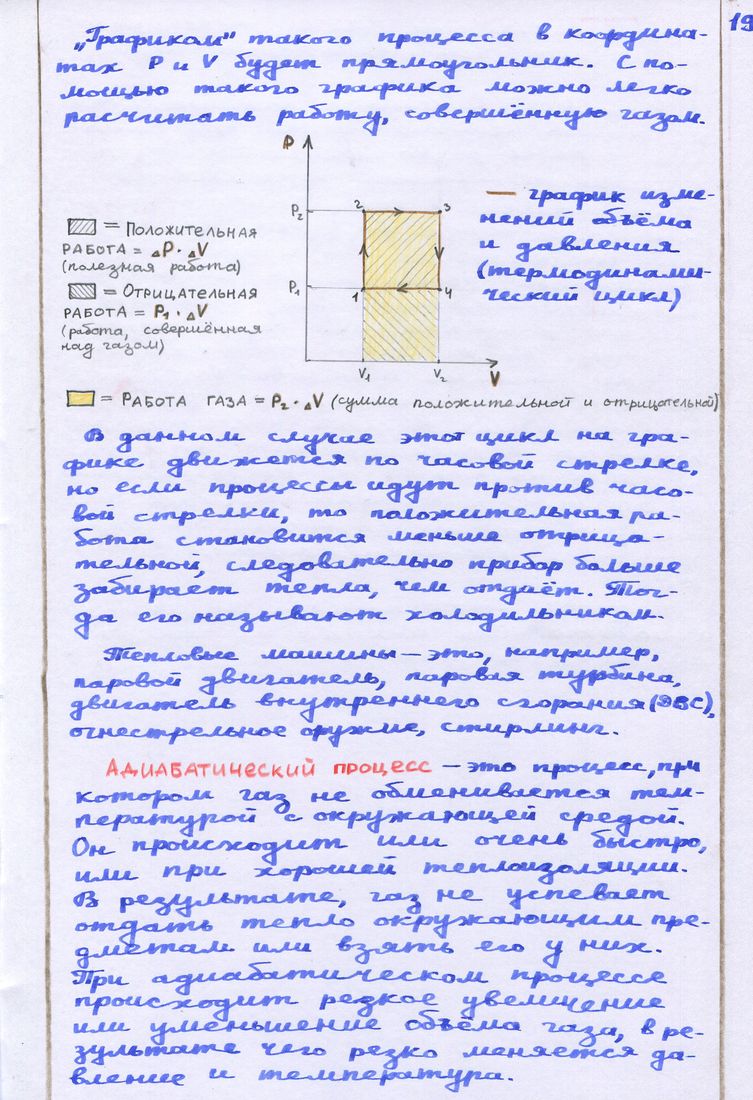 19
„Графиком" такого процесса в координа-
тах P и V будет прямоугольник. С по-
мощью такого графика можно легко
расчитать работу, совершённую газом.
P
P₂
2
3
P₁
1
4
V₁
V₂
V
= Положительная
работа = △P · △V
(полезная работа)
= Отрицательная
работа = P₁ · △V
(работа, совершённая
над газом)
— график изме-
нений объёма
и давления
(термодинами-
ческий цикл)
= Работа газа = P₂ · △V (сумма положительной и отрицательной)
В данном случае этот цикл на гра-
фике движется по часовой стрелке,
но если процессы идут против часо-
вой стрелки, то положительная ра-
бота становится меньше отрица-
тельной, следовательно прибор больше
забирает тепла, чем отдаёт. Тог-
да его называют холодильником.
Тепловые машины – это, например,
паровой двигатель, паровая турбина,
двигатель внутреннего сгорания (ДВС),
огнестрельное оружие, стирлинг.
Адиабатический процесс – это процесс, при
котором газ не обменивается тем-
пературой с окружающей средой.
Он происходит или очень быстро,
или при хорошей теплоизоляции.
В результате, газ не успевает
отдать тепло окружающим пре-
дметам или взять его у них.
При адиабатическом процессе
происходит резкое увеличение
или уменьшение объёма газа, в ре-
зультате чего резко меняется да-
вление и температура.